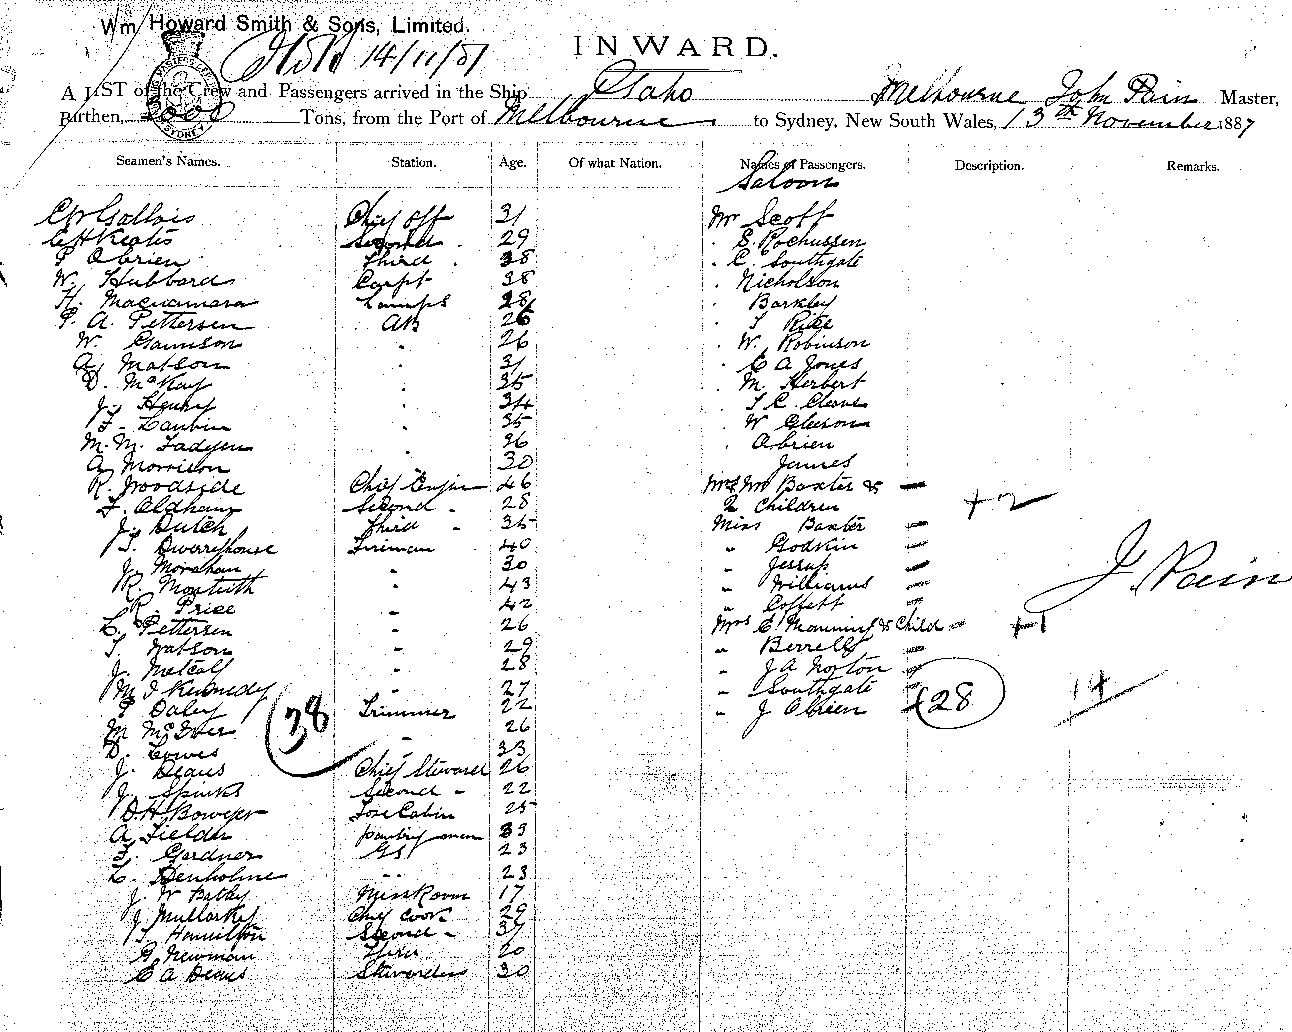 Wm Howard Smith & Sons, Limited.
14/11/87
INWARD.
A LIST of the Crew and Passengers arrived in the Ship Melbourne John Pain Master,
Burthen, Tons, from the Port of Melbourne to Sydney, New South Wales, 13th November 1887
Seamen's Names. Station. Age. Of what Nation. Names of Passengers. Description. Remarks.
Saloon
Chief Off 31 Mr Scott
C H Keates Second 29 S. Rochussen
P Obrien Third 38 C. Southgate
W. Hubbard Carpt 38 Nicholson
H. Macnamara Lamps 28 Barkley
P. A. Pettersen AB 26 T Rice
W. 26 W. Robinson
A Matson 31 C A Jones
D. McKay 35 M. Herbert
J. Henry 34 T C
F. 35 W Gleeson
M. M. Fadyen 26 Obrien
A Morrison 30 James
R. Woodside Chief Engin 46 Mr & Mrs Baxter &
F. Oldham Second 28 2 Children +2
J. Dutch Third 35 Miss Baxter
T. Dwerryhouse Fireman 40 " Godkin
J. Monahan " 30 " Jessup
R. Monteith " 43 " Williams J. Pain
R. Price " 42 "
L. Pettersen " 26 Mrs C. Manning & Child +1
T. Watson " 29 "
J. Metcalf " 28 " J A Norton
M J Kennedy " 27 " Southgate
P Daley 38 Trimmer 22 " J Obrien 28 14
M McIver " 26
D. Lowes 33
J. Deans Chief Steward 26
J. Spinks Second " 22
D. H. Bowyer Fore Cabin 25
A Fielder Pantry man 33
F. Gardner GS 23
L. Denholme " 23
J. W Messroom 17
J. Mullarkey Chief Cook 29
T. Hamilton Second " 37
G. Newman 20
C A Deans Stewardess 30